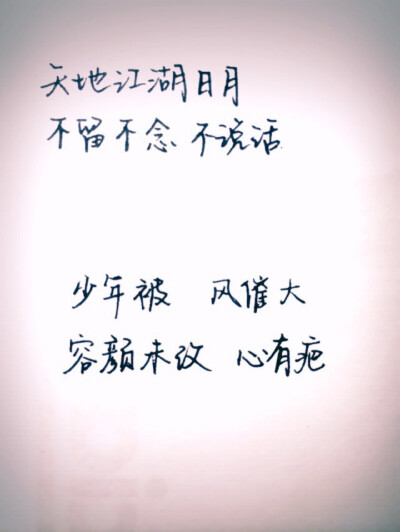 天地江湖日月
不留不念 不说话
少年被 风催大
容颜未改 心有疤